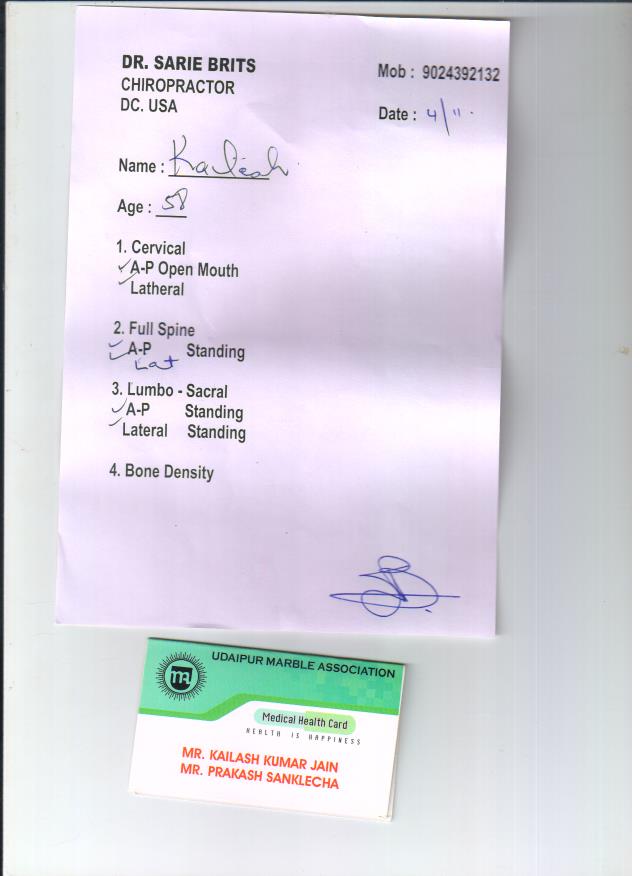 DR. SARIE BRITS
CHIROPRACTOR
DC. USA
Mob : 9024392132
Date : 4/11
Name : Kailash
Age : 58
1. Cervical
A-P Open Mouth
Latheral
2. Full Spine
A-P Standing
Lat
3. Lumbo - Sacral
A-P Standing
Lateral Standing
4. Bone Density
UDAIPUR MARBLE ASSOCIATION
m
Medical Health Card
HEALTH IS HAPPINESS
MR. KAILASH KUMAR JAIN
MR. PRAKASH SANKLECHA